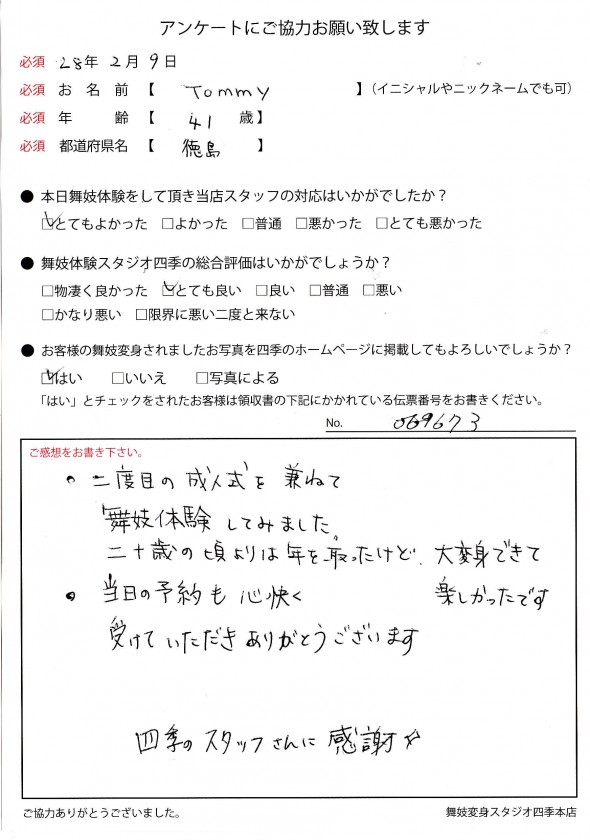 アンケートにご協力お願い致します
必須 28年 2月 9日
必須 お名前【 Tommy 】（イニシャルやニックネームでも可）
必須 年齢【 41 歳】
必須 都道府県名【 徳島 】
● 本日舞妓体験をして頂き当店スタッフの対応はいかがでしたか？
☑とてもよかった □よかった □普通 □悪かった □とても悪かった
● 舞妓体験スタジオ四季の総合評価はいかがでしょうか？
□物凄く良かった ☑とても良い □良い □普通 □悪い
□かなり悪い □限界に悪い二度と来ない
● お客様の舞妓変身されましたお写真を四季のホームページに掲載してもよろしいでしょうか？
☑はい □いいえ □写真による
「はい」とチェックをされたお客様は領収書の下記にかかれている伝票番号をお書きください。
No. 069673
ご感想をお書き下さい。
・二度目の成人式を兼ねて
舞妓体験してみました。
二十歳の頃よりは年を取ったけど、大変身できて
楽しかったです
・当日の予約も心快く
受けていただきありがとうございます
四季のスタッフさんに感謝☆
ご協力ありがとうございました。
舞妓変身スタジオ四季本店